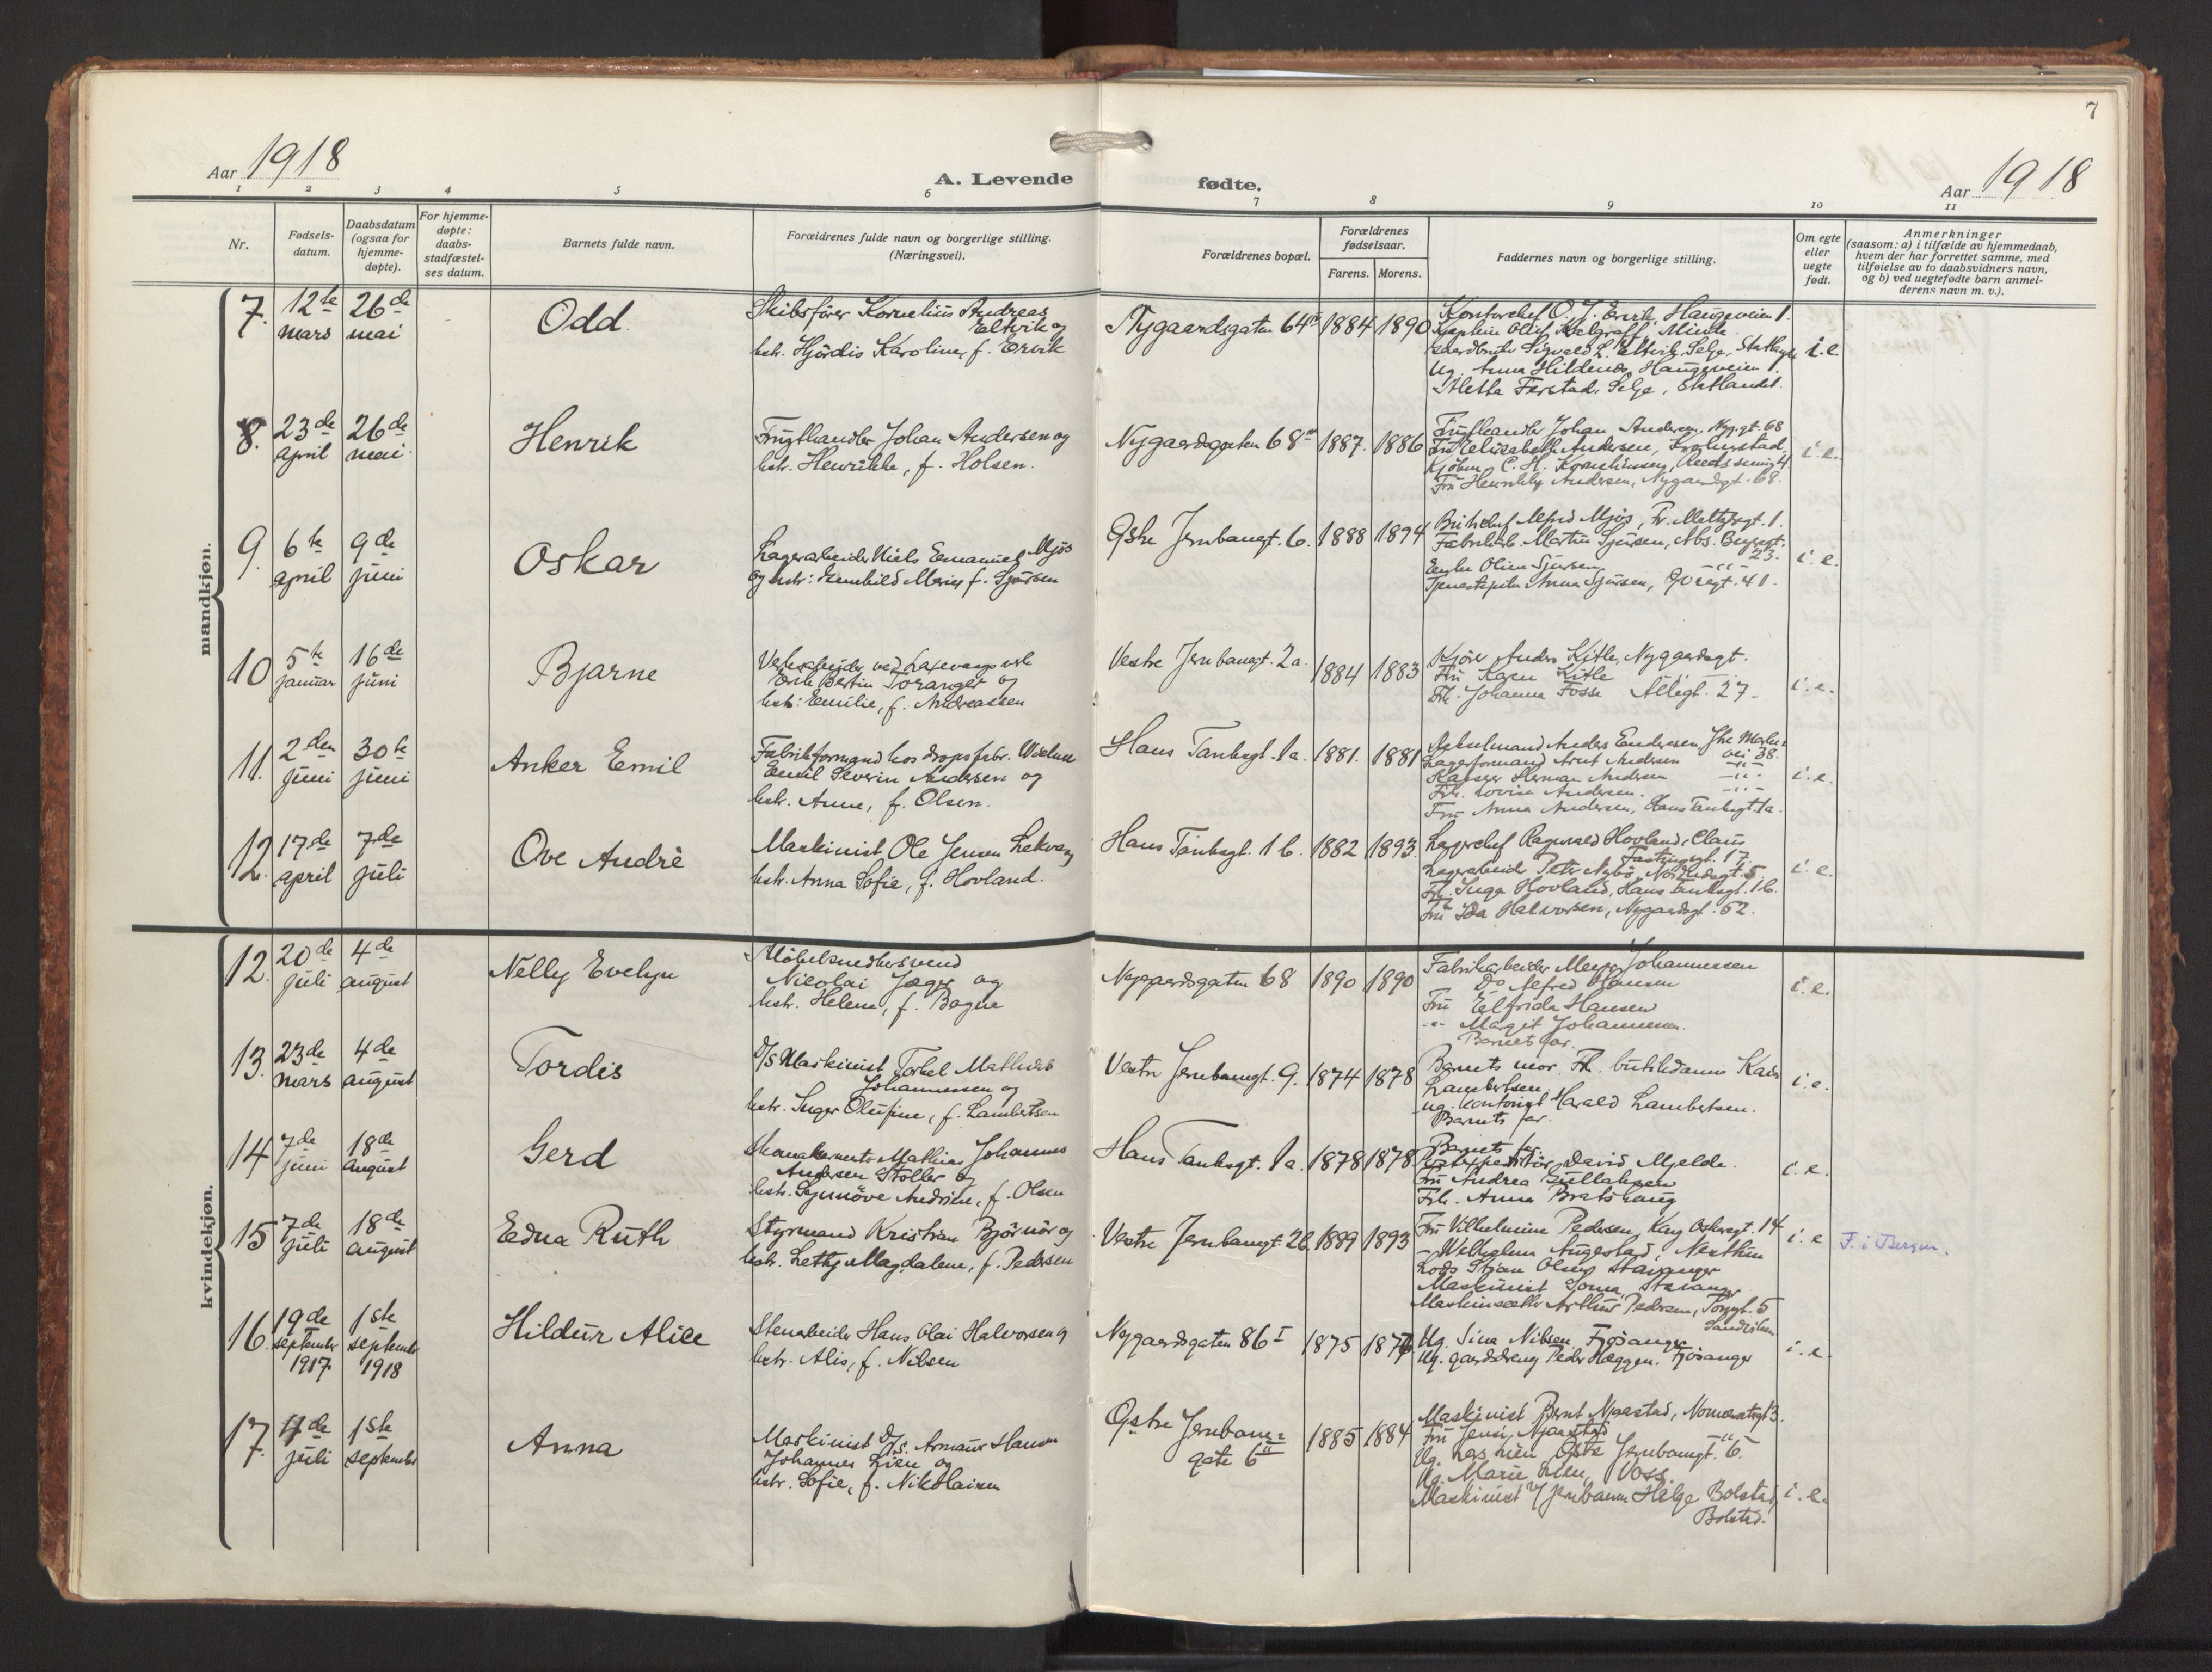 7
Aar 1918
A. Levende fødte.
Aar 1918
1 2 3 4 5 6 7 8 9 10 11
Nr.
Fødsels-
datum.
Daabsdatum
(ogsaa for
hjemme-
døpte).
For hjemme-
døpte:
daabs-
stadfæstel-
ses datum.
Barnets fulde navn.
Forældrenes fulde navn og borgerlige stilling.
(Næringsvei).
Forældrenes bopæl.
Forældrenes
fødselsaar.
Farens. Morens.
Faddernes navn og borgerlige stilling.
Om egte
eller
uegte
født.
Anmerkninger
(saasom: a) i tilfælde av hjemmedaab,
hvem der har forrettet samme, med
tilføielse av to daabsvidners navn,
og b) ved uegtefødte barn anmel-
derens navn m. v.).
mandkjøn.
7.
12te
mars
26de
mai
Odd.
Skibsfører Kornelius Andreas
Eltvik og
hstr. Hjördis Karoline, f. Ervik
Nygaardsgaten 64
1884
1890
Kontorchef O. J. Ervik, Haugeveien 1.
Minde.
Sigvald L. Eltvik, Selje,
Ug. Anna Hildenes, Haugeveien 1.
Farstad, Selje, Statlandet.
i.e.
8.
23de
april
26de
mai
Henrik
Frugthandler Johan Andersen og
hstr. Henrikke, f. Holsen.
Nygaardsgaten 68
1887.
1886
Frugthandler Johan Andersen, Nyg.gt. 68
Fru Elisabeth Andersen,
Kjøbm. C. H.
Fru Henrikke Andersen, Nygaardsgt. 68.
i.e.
9.
6te
april
9de
juni
Oskar
Lagerarbeider Niels Emanuel Mjøs
og hstr: Gunhild Marie, f. Sjursen
Østre Jernbanegt. 6.
1888
1894
Alfred Mjös, Fr. Meltzersgt. 1.
Fabrikarb. Martin Sjursen, Abs. Beyersgt.
23.
Enke Oline Sjursen,
Tjenestepike Anna Sjursen, Øvregt. 41.
i.e.
10
5te
januar
16de
juni
Bjarne
Verksarbeider ved Laxevaags verk
Erik Bertin Toranger og
hstr: Emilie, f. Andreassen
Vestre Jernbanegt. 2a.
1884
1883
Kjører Anders Kitle, Nygaardsgt.
Fru Karen Kitle
Frk. Johanna Fosse Allegt. 27.
i.e.
11.
2den
juni
30te
juni
Anker Emil
Fabrikformand hos dropsfabr.
Emil Severin Andersen og
hstr. Anne, f. Olsen.
Hans Tanksgt. 1a.
1881.
1881
Anders Endresen
vei 38.
Lagerformand Arnt Andersen
Kasserer Herman Andersen
Frk. Lovise Andersen.
Fru Anna Andersen, Hans Tanksgt. 1a.
i.e.
12.
17de
april
7de
juli
Ove Andrè
Maskinist Ole Jensen Lekven og
hstr. Anna Sofie, f. Hovland.
Hans Tanksgt. 1b.
1882
1893.
Lagerchef Ragnvald Hovland, Claus
Fastingsgt. 17.
Lagerarbeider Peter Nybö,
Frk. Inga Hovland, Hans Tanksgt. 1b.
Fru Ida Halvorsen, Nygaardsgt. 52.
i.e.
kvindekjøn.
12.
20de
juli
4de
august
Nelly Evelyn
Möbelsnedkersvend
Nicolai Jæger og
hstr. Helene, f. Bagne
Nygaardsgaten 68
1890
1890
Fabrikarbeider Meyer Johannessen
Do Alfred Hansen
Fru Elfrida Hansen
-"- Margit Johannessen.
Barnets far.
i.e.
13.
23de
mars
4de
august
Tordis
D/S Maskinist Torkel Mathias
Johannessen og
hstr. Inger Olufine, f. Lambertsen
Vestre Jernbanegt. 9.
1874
1878
Barnets mor. Frk. butikdame
Lambertsen.
ug. kontorist Harald Lambertsen.
Barnets far.
i.e.
14
7de
juni
18de
august
Gerd
Skomakermester Mathias Johannes
Andersen Støller og
hstr. Synnöve Andrine, f. Olsen
Hans Tanksgt. 1a.
1878
1878
Barnets far.
David Mjelde.
Fru Andrea Gullaksen
Frk. Anna Bratshaug
i.e.
15
7de
juli
18de
august
Edna Ruth
Styrmand Kristian Björnör og
hstr. Lethy Magdalene, f. Pedersen
Vestre Jernbanegt. 2b.
1889
1893
Fru Vilhelmine Pedersen, Kong Oskarsgt. 14
Augestad, Nesttun
Lods Stian Olsen, Stavanger
Maskinist Soma, Stavanger
Arthur Pedersen, Torvgt. 5
Sandviken
i.e
F. i Bergen.
16.
19de
september
1917.
1ste
september
1918
Hildur Alice
Stenarbeider Hans Olai Halvorsen og
hstr. Alis, f. Nilsen
Nygaardsgaten 86 I
1875
Ug. Sina Nilsen, Fjøsanger
Ug. gaardsdreng Peder Hæggen, Fjøsanger
i.e.
17.
juli
1ste
september
Anna
Maskinist D/S. Armaur Hansen
Johannes Lien og
hstr. Sofie, f. Nikolaisen
Østre Jernbane-
gate 6
1885
1884
Maskinist Bernt Njaastad,
Fru Jensi Njaastad
Ug. Lars Lien, Østre Jernbanegt. 6.
Ug. Marie Lien, Voss.
Maskinist v/ jernbanen Helge Bolstad,
Bolstad.
i.e.